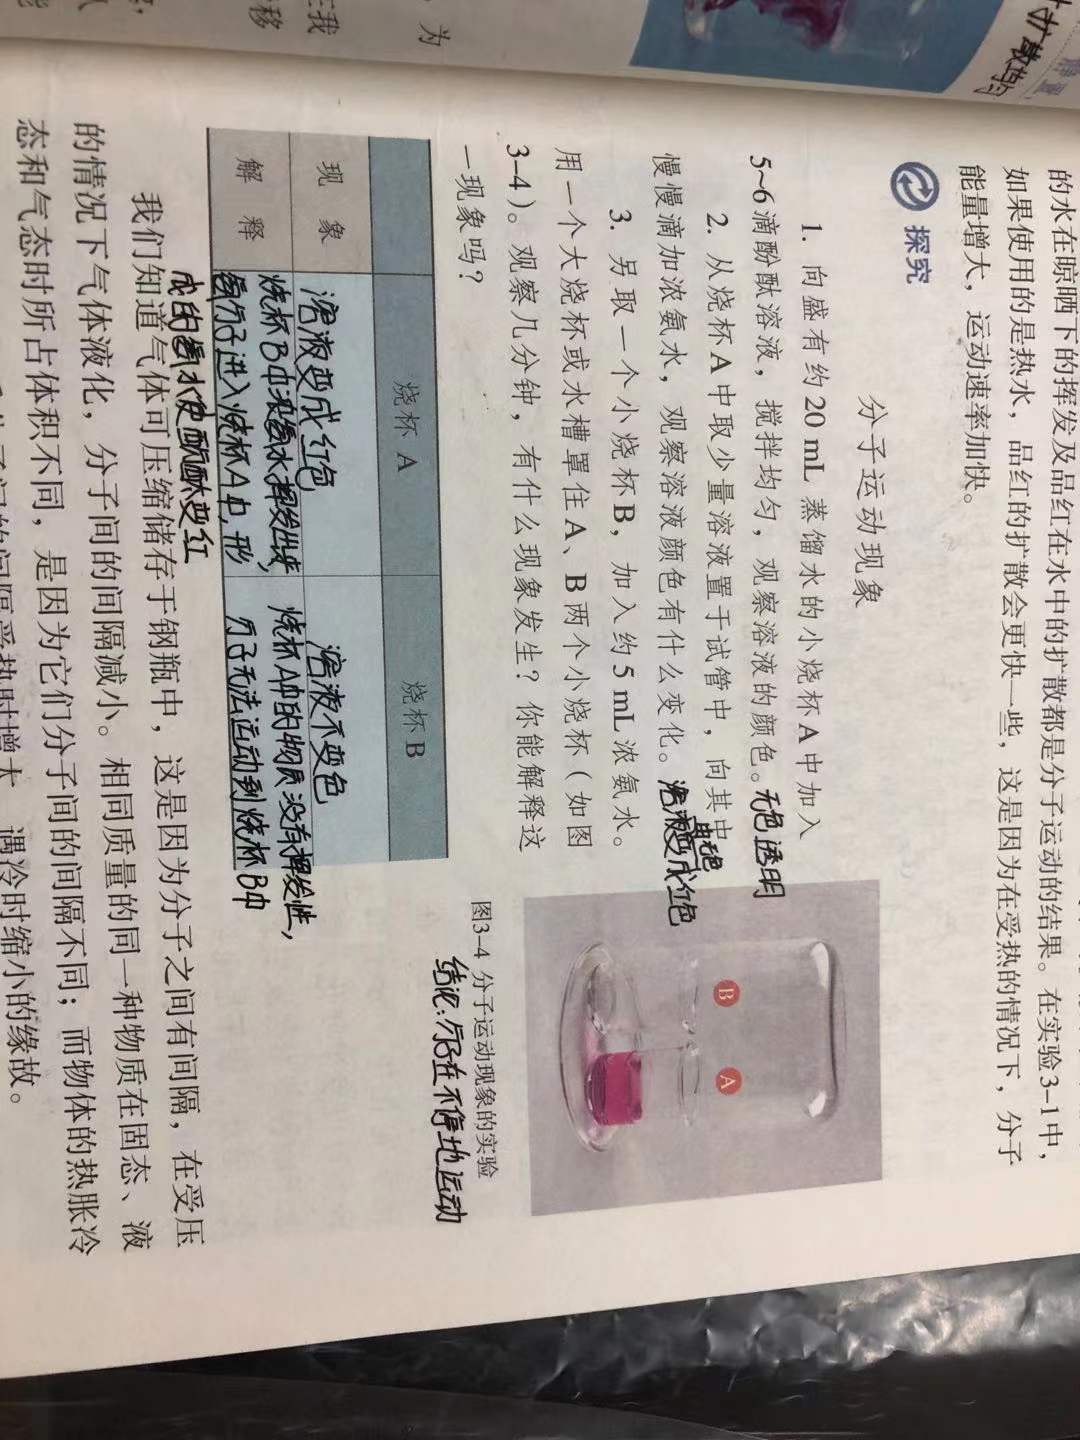 为
在我
移
扩散均匀
静置
的水在晾晒下的挥发及品红在水中的扩散都是分子运动的结果。在实验3-1中，
如果使用的是热水，品红的扩散会更快一些，这是因为在受热的情况下，分子
能量增大，运动速率加快。
探究
分子运动现象
1. 向盛有约20 mL 蒸馏水的小烧杯A中加入
5~6滴酚酞溶液，搅拌均匀，观察溶液的颜色。无色透明
2. 从烧杯A中取少量溶液置于试管中，向其中
慢慢滴加浓氨水，观察溶液颜色有什么变化。溶液变成红色
由无色
3. 另取一个小烧杯B，加入约5 mL浓氨水。
用一个大烧杯或水槽罩住A、B两个小烧杯（如图
3-4）。观察几分钟，有什么现象发生？你能解释这
一现象吗？
B
A
图3-4 分子运动现象的实验
结论：分子在不停地运动
烧杯A
烧杯B
现象
溶液变成红色
溶液不变色
解释
烧杯B中浓氨水挥发出来，
氨分子进入烧杯A中，形
成的氨水使酚酞变红
烧杯A中的物质没有挥发性，
分子无法运动到烧杯B中
我们知道气体可压缩储存于钢瓶中，这是因为分子之间有间隔，在受压
的情况下气体液化，分子间的间隔减小。相同质量的同一种物质在固态、液
态和气态时所占体积不同，是因为它们分子间的间隔不同；而物体的热胀冷
间的间隔受热时增大，遇冷时缩小的缘故。